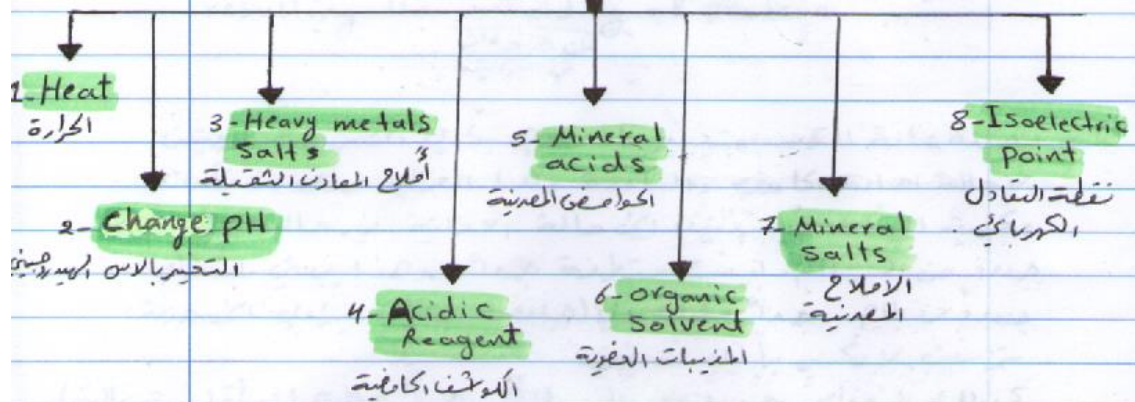 1- Heat
الحرارة
2- Change pH
التغير بالاس الهيدروجيني
3- Heavy metals
Salts
أملاح المعادن الثقيلة
4- Acidic
Reagent
الكواشف الحامضية
5- Mineral
acids
الحوامض المعدنية
6- organic
Solvent
المذيبات العضوية
7- Mineral
Salts
الاملاح
المعدنية
8- Isoelectric
point
نقطة التعادل
الكهربائي